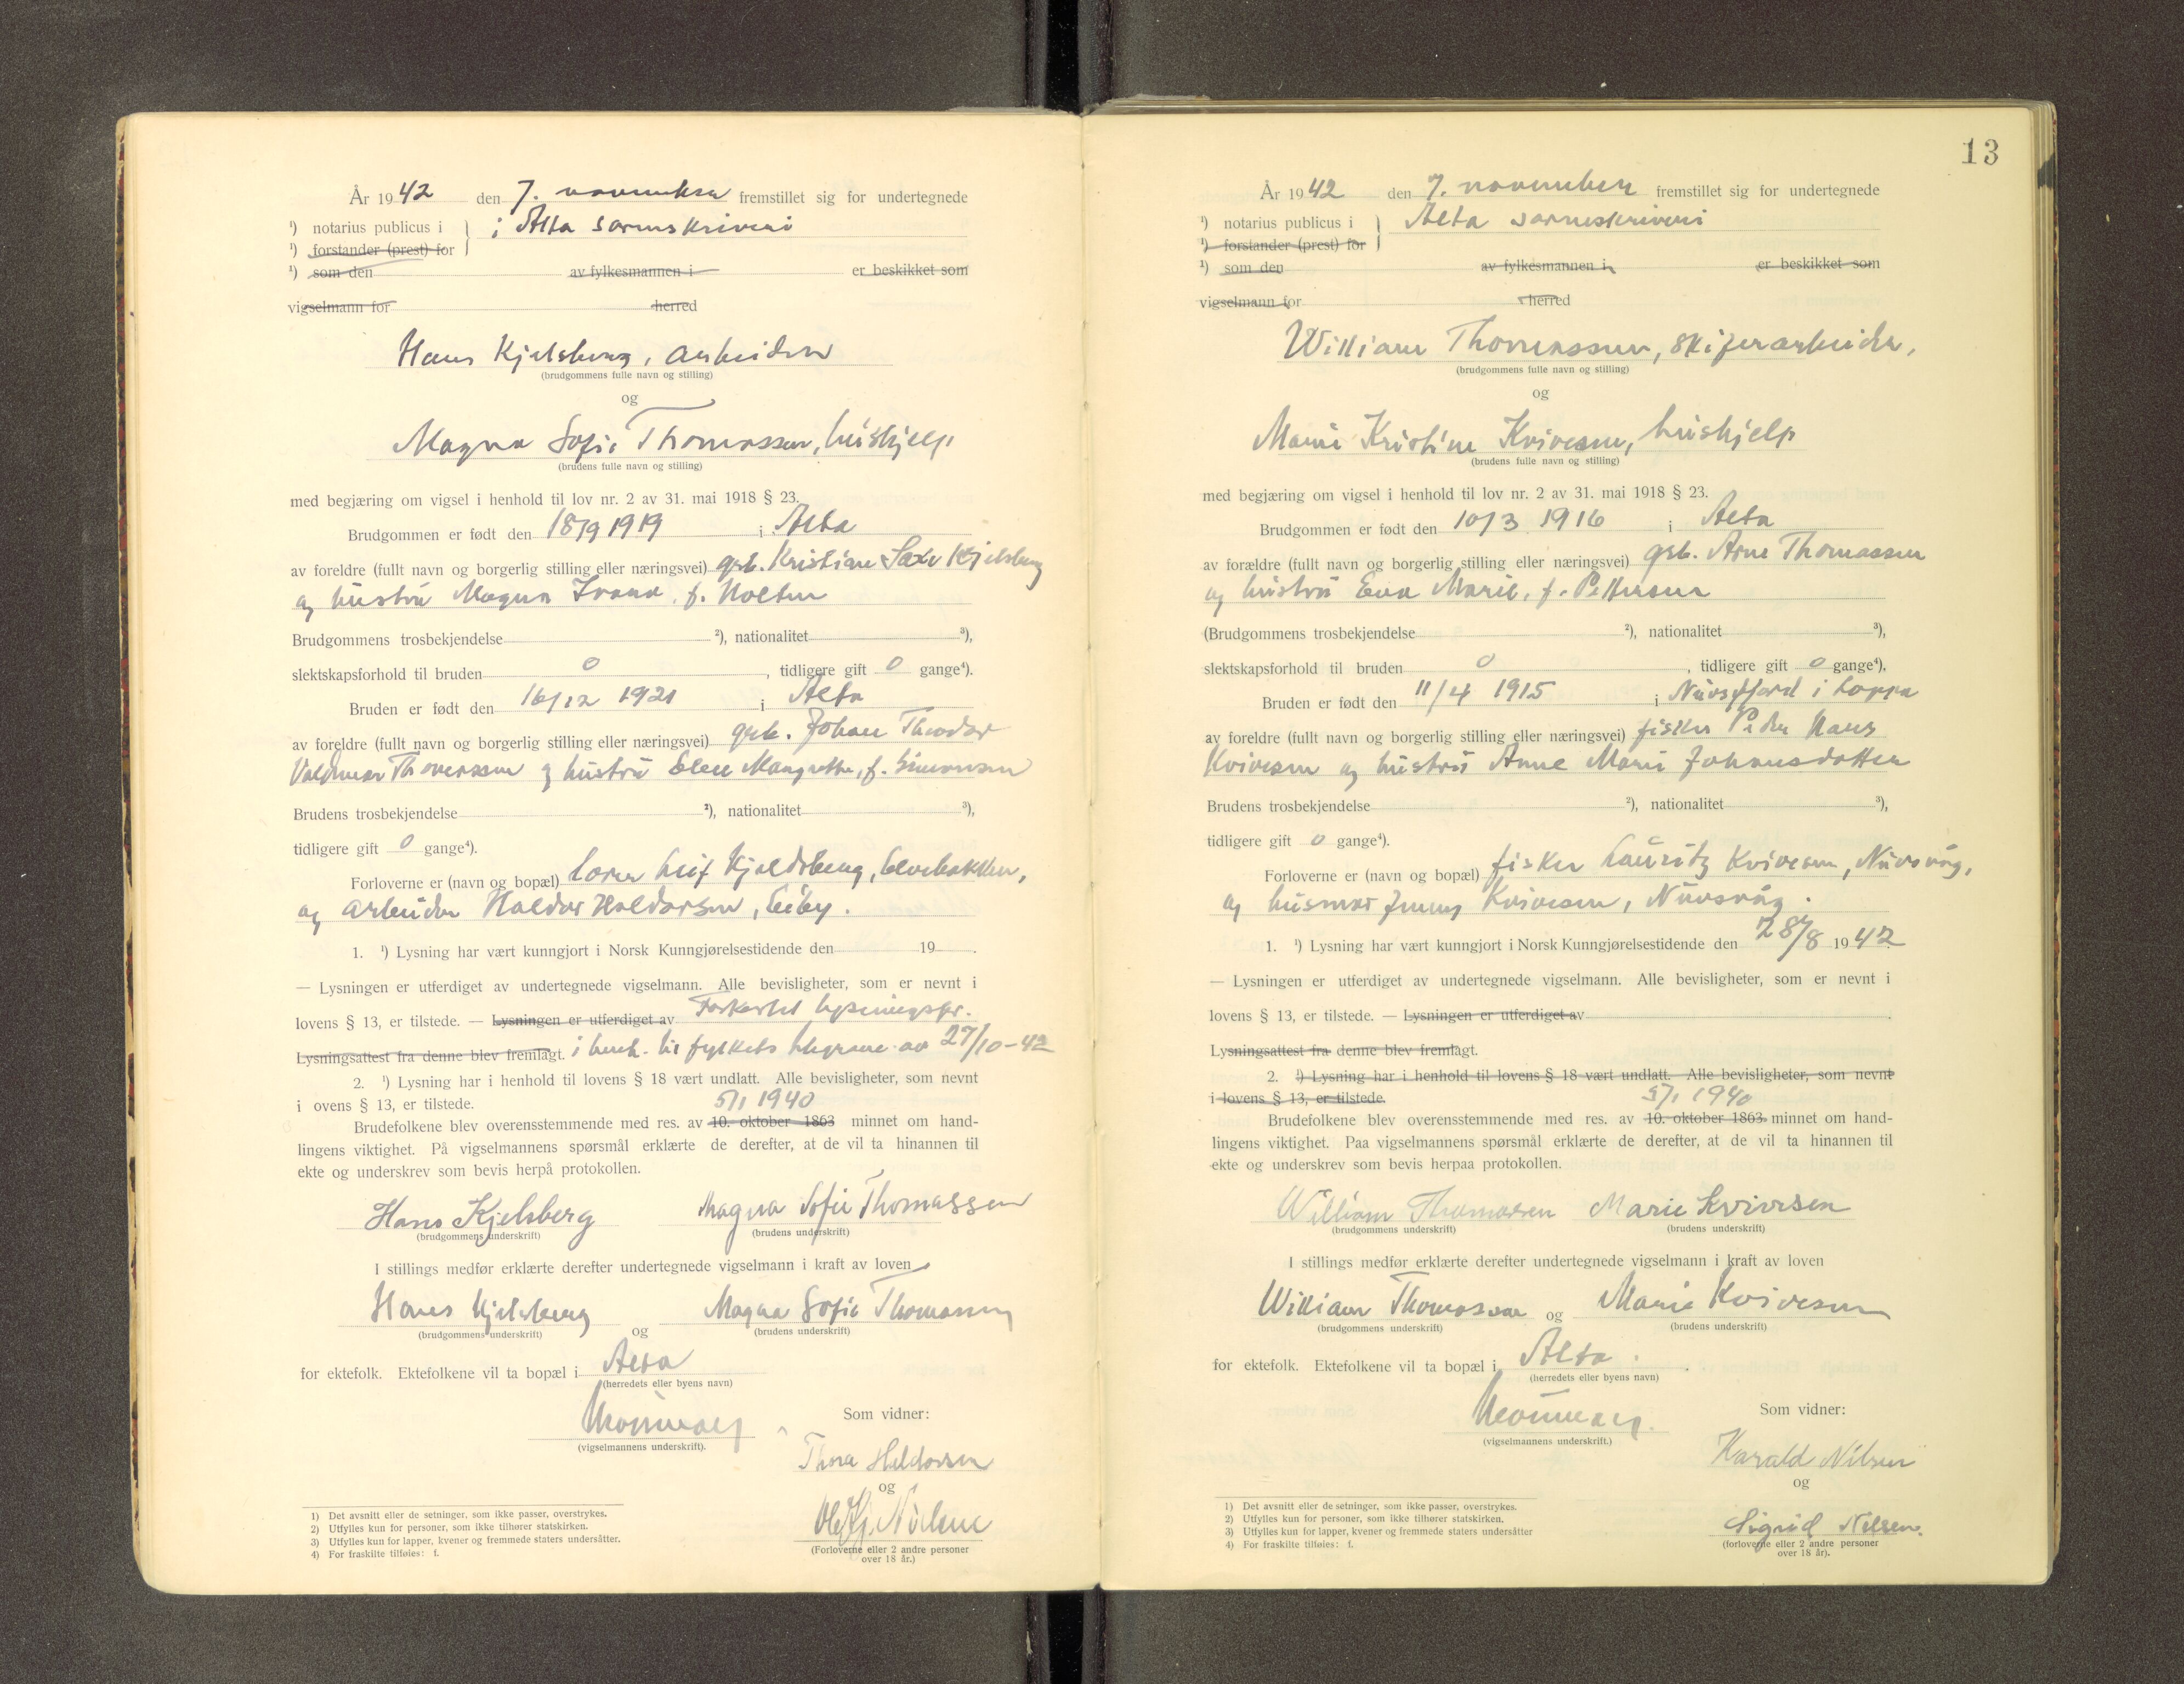 År 1942 den 7. november fremstillet sig for undertegnede
¹) notarius publicus i } i Alta sorenskriveri
¹) forstander (prest) for
¹) som den av fylkesmannen i er beskikket som
vigselmann for herred
Hans Kjelsberg, arbeider
(brudgommens fulle navn og stilling)
og
Magna Sofie Thomassen, hushjelp
(brudens fulle navn og stilling)
med begjæring om vigsel i henhold til lov nr. 2 av 31. mai 1918 § 23.
Brudgommen er født den 18/9 1919 i Alta
av foreldre (fullt navn og borgerlig stilling eller næringsvei) grb. Kristian Kjelsberg
og hustru Magna f. Holten
Brudgommens trosbekjendelse ²), nationalitet ³),
slektskapsforhold til bruden 0, tidligere gift 0 gange⁴).
Bruden er født den 16/12 1921 i Alta
av foreldre (fullt navn og borgerlig stilling eller næringsvei) grb. Johan Theodor
Valdemar Thomassen og hustru Ellen Margrethe, f. Simonsen
Brudens trosbekjendelse ²), nationalitet ³),
tidligere gift 0 gange⁴).
Forloverne er (navn og bopæl) Leif Kjeldsberg, Elvebakken,
og arbeider Haldor Haldorsen, Eiby.
1. ¹) Lysning har vært kunngjort i Norsk Kunngjørelsestidende den 19 .
— Lysningen er utferdiget av undertegnede vigselmann. Alle bevisligheter, som er nevnt i
lovens § 13, er tilstede. — Lysningen er utferdiget av Forkortet lysningsfr.
Lysningsattest fra denne blev fremlagt. i henh. til fylkets telegram av 27/10-42
2. ¹) Lysning har i henhold til lovens § 18 vært undlatt. Alle bevisligheter, som nevnt
i ovens § 13, er tilstede.
5/1 1940
Brudefolkene blev overensstemmende med res. av 10. oktober 1863 minnet om hand-
lingens viktighet. På vigselmannens spørsmål erklærte de derefter, at de vil ta hinannen til
ekte og underskrev som bevis herpå protokollen.
Hans Kjelsberg Magna Sofie Thomassen
(brudgommens underskrift) (brudens underskrift)
I stillings medfør erklærte derefter undertegnede vigselmann i kraft av loven
Hans Kjelsberg og Magna Sofie Thomassen
(brudgommens underskrift) (brudens underskrift)
for ektefolk. Ektefolkene vil ta bopæl i Alta
(herredets eller byens navn)
(vigselmannens underskrift).
Som vidner:
Thora Haldorsen
og
Nilsen
(Forloverne eller 2 andre personer
over 18 år.)
1) Det avsnitt eller de setninger, som ikke passer, overstrykes.
2) Utfylles kun for personer, som ikke tilhører statskirken.
3) Utfylles kun for lapper, kvener og fremmede staters undersåtter.
4) For fraskilte tilføies: f.
13
År 1942 den 7. november fremstillet sig for undertegnede
¹) notarius publicus i } Alta sorenskriveri
¹) forstander (prest) for
¹) som den av fylkesmannen i er beskikket som
vigselmann for herred
William Thomassen, skiferarbeider,
(brudgommens fulle navn og stilling)
og
Marie Kristine Kvivesen, hushjelp
(brudens fulle navn og stilling)
med begjæring om vigsel i henhold til lov nr. 2 av 31. mai 1918 § 23.
Brudgommen er født den 10/3 1916 i Alta
av forældre (fullt navn og borgerlig stilling eller næringsvei) grb. Arne Thomassen
og hustru Eva Marie, f. Pettersen
(Brudgommens trosbekjendelse ²), nationalitet ³),
slektskapsforhold til bruden 0, tidligere gift 0 gange⁴).
Bruden er født den 11/4 1915 i Nuvsfjord i Loppa
av foreldre (fullt navn og borgerlig stilling eller næringsvei) fisker Peder Hans
Kvivesen og hustru Anne Marie Johansdatter
Brudens trosbekjendelse ²), nationalitet ³),
tidligere gift 0 gange⁴).
Forloverne er (navn og bopæl) fisker Lauritz Kvivesen, Nuvsvåg,
og husmor Jenny Kvivesen, Nuvsvåg.
1. ¹) Lysning har vært kunngjort i Norsk Kunngjørelsestidende den 28/8 1942
— Lysningen er utferdiget av undertegnede vigselmann. Alle bevisligheter, som er nevnt i
lovens § 13, er tilstede. — Lysningen er utferdiget av .
Lysningsattest fra denne blev fremlagt.
2. ¹) Lysning har i henhold til lovens § 18 vært undlatt. Alle bevisligheter, som nevnt
i lovens § 13, er tilstede.
5/1 1940
Brudefolkene blev overensstemmende med res. av 10. oktober 1863 minnet om hand-
lingens viktighet. Paa vigselmannens spørsmål erklærte de derefter, at de vil ta hinannen til
ekte og underskrev som bevis herpaa protokollen.
William Thomassen Marie Kvivesen
(brudgommens underskrift) (brudens underskrift)
I stillings medfør erklærte derefter undertegnede vigselmann i kraft av loven
William Thomassen og Marie Kvivesen
(brudgommens underskrift) (brudens underskrift)
for ektefolk. Ektefolkene vil ta bopæl i Alta.
(herredets eller byens navn)
(vigselmannens underskrift.)
Som vidner:
Harald Nilsen
og
Sigrid Nilsen.
(forloverne eller 2 andre personer
over 18 år).
1) Det avsnitt eller de setninger, som ikke passer, overstrykes.
2) Utfylles kun for personer, som ikke tilhører statskirken.
3) Utfylles kun for lapper, kvener og fremmede staters undersåtter
4) For fraskilte tilføies: f.